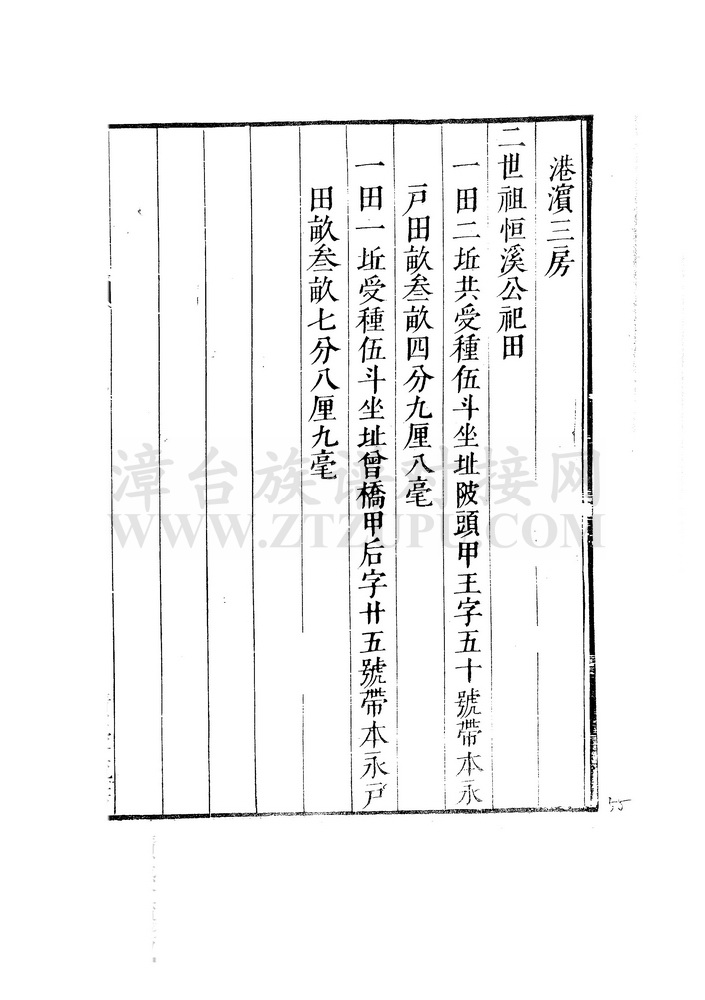 港濵三房
二世祖恒溪公祀田
一田二坵共受種伍斗坐址陂頭甲王字五十號帶本永
戸田畝叁畝四分九厘八毫
一田一坵受種伍斗坐址曾橋甲后字廿五號帶本永戸
田畝叁畝七分八厘九毫
漳台族谱对接网
WWW.ZTZUPU.COM
55